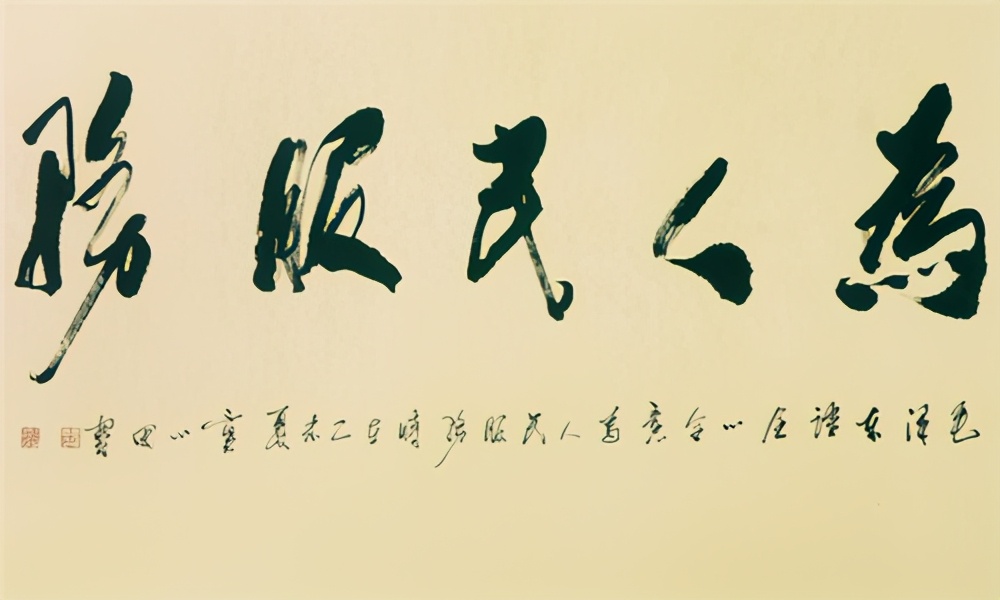 為人民服務
毛澤東語全心全意為人民服務時在乙未夏